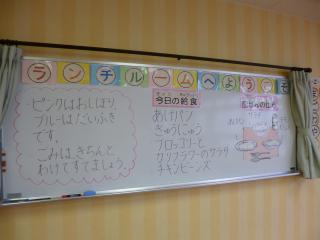 ランチルームへようこそ
ピンクはおしぼり、
ブルーはだいふき
です。
ごみは、きちんと
わけてすてましょう。
今日の給食
あげパン
ぎゅうにゅう
ブロッコリーと
カリフラワーのサラダ
チキンビーンズ
サラダ